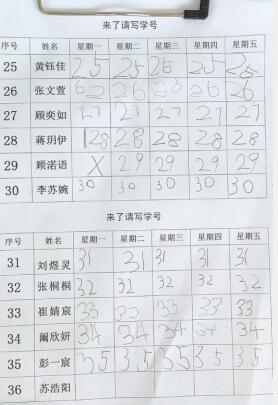 来了请写学号
序号 姓名 星期一 星期二 星期三 星期四 星期五
25 黄钰佳 25 25 25 25 25
26 张文萱 62 26 26 26 26
27 顾奕如 27 27 27 27 27
28 蒋玥伊 128 28 28 28 28
29 顾渃语 X 29 29 29 29
30 李苏婉 30 30 30 30 30
来了请写学号
序号 姓名 星期一 星期二 星期三 星期四 星期五
31 刘煜灵 31 31 31 31 31
32 张桐桐 32 32 32 32 32
33 崔婧宸 33 33 33 33 33
34 阚欣妍 34 34 34 34 34
35 彭一宸 35 35 35 35 35
36 苏浩阳